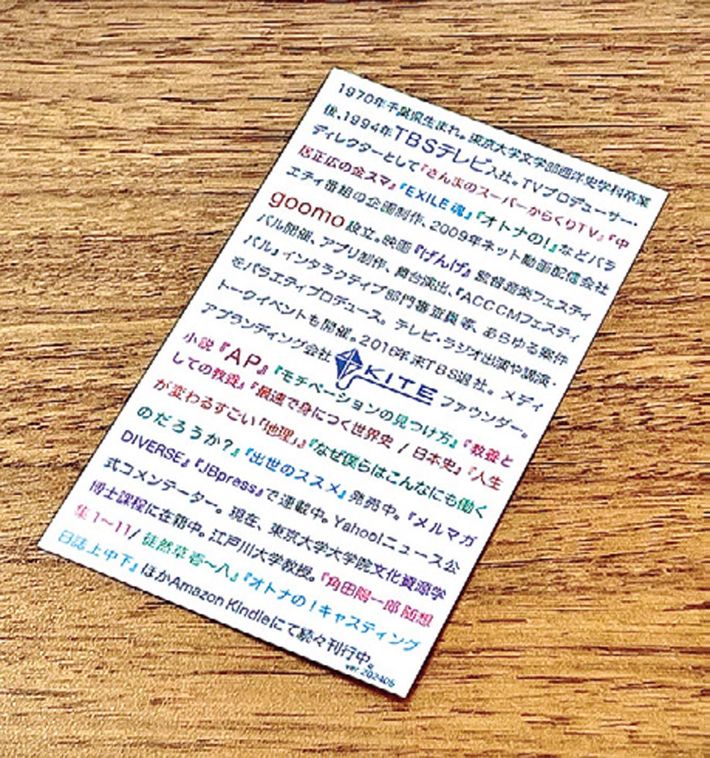 1970年千葉県生まれ。東京大学文学部西洋史学科卒業
後、1994年TBSテレビ入社。TVプロデューサー・
ディレクターとして『さんまのスーパーからくりTV』『中
居正広の金スマ』『EXILE魂』『オトナの!』などバラ
エティ番組の企画制作、2009年ネット動画配信会社
goomo設立。映画『げんげ』監督音楽フェスティ
バル開催、アプリ制作、舞台演出、『ACCCMフェスティ
バル』インタラクティブ部門審査員等、あらゆる案件
をバラエティプロデュース。テレビ・ラジオ出演や講演・
トークイベントも開催。2016年末TBS退社。メディ
アブランディング会社 KITE ファウンダー。
小説『AP』『モチベーションの見つけ方』『教養と
しての教養』『最速で身につく世界史 / 日本史』『人生
が変わるすごい「地理」』『なぜ僕らはこんなにも働く
のだろうか?』『出世のススメ』発売中。『メルマガ
DIVERSE』『JBpress』で連載中。Yahoo!ニュース公
式コメンテーター。現在、東京大学大学院文化資源学
博士課程に在籍中。江戸川大学教授。『角田陽一郎 随想
集 1〜11/ 徒然草壱〜八』『オトナの!キャスティング
日誌上中下』ほかAmazon Kindleにて続々刊行中。
ver.202405